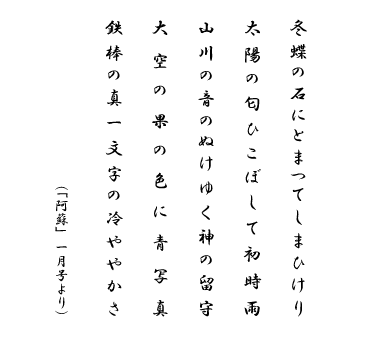 冬蝶の石にとまつてしまひけり
太陽の匂ひこぼして初時雨
山川の音のぬけゆく神の留守
大空の果の色に青写真
鉄棒の真一文字の冷ややかさ
（「阿蘇」一月号より）